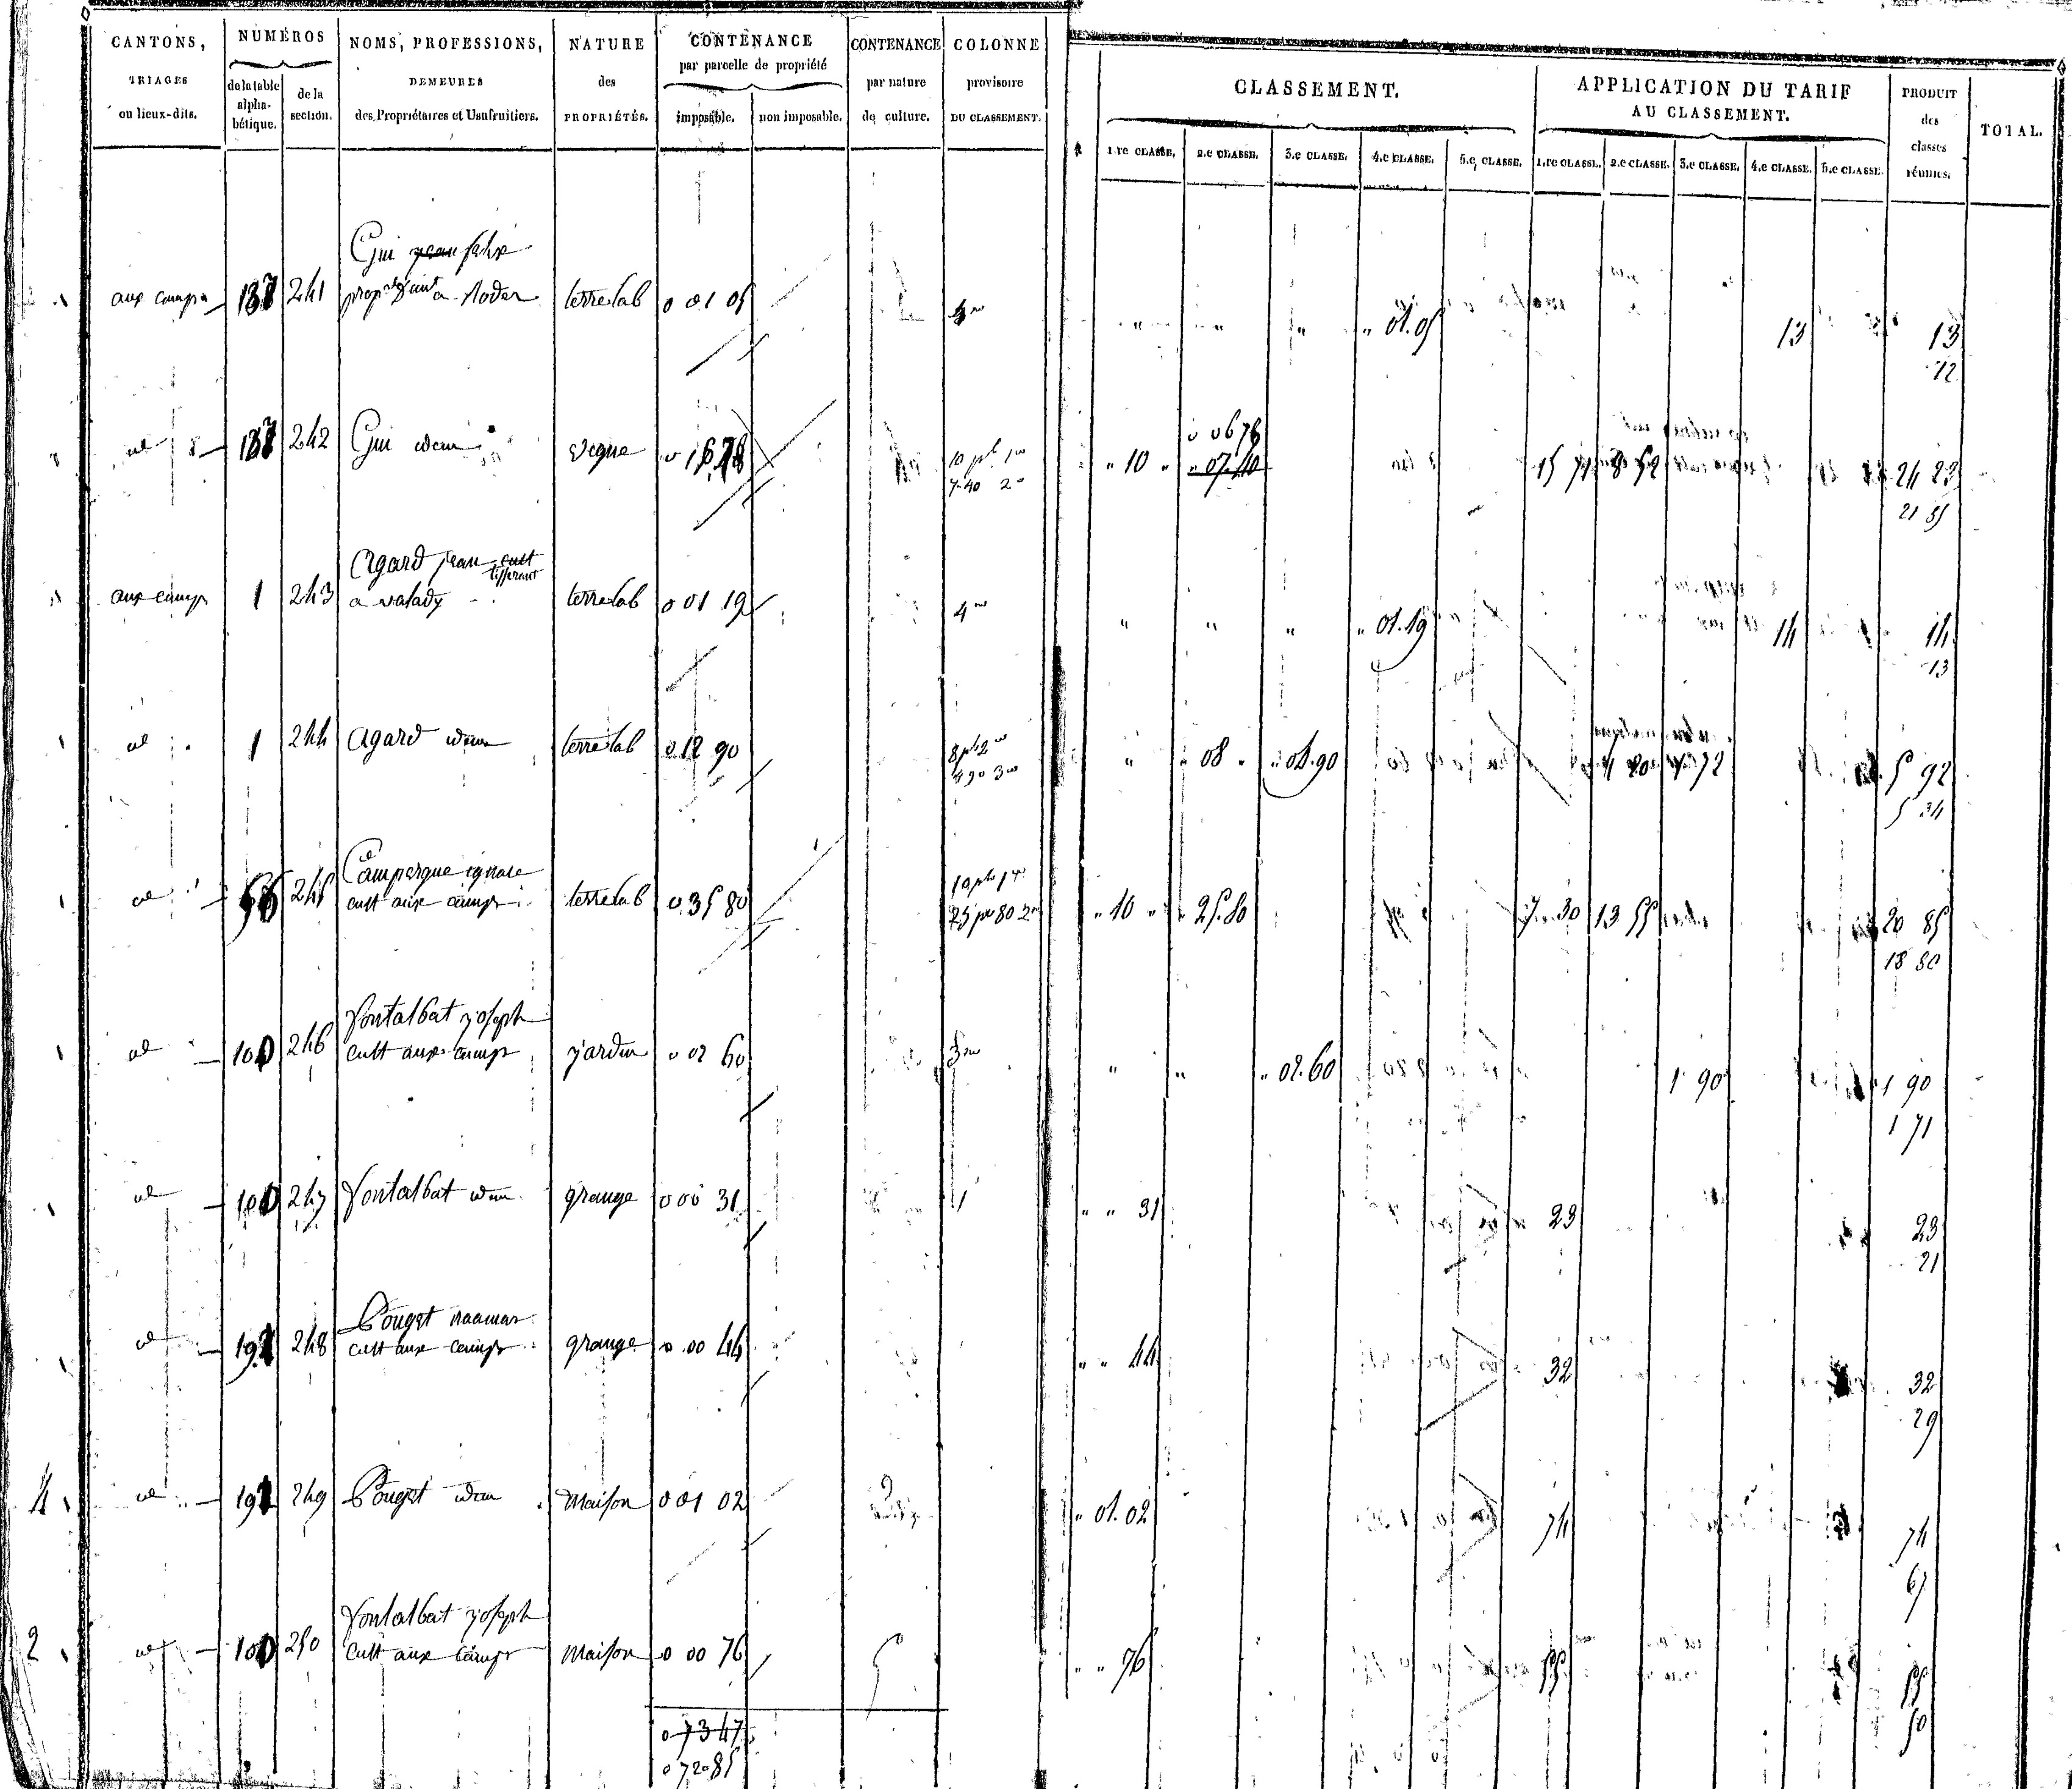 CANTONS,
TRIAGES
ou lieux-dits.
NUMÉROS
de la table
alpha-
bétique.
de la
section.
NOMS, PROFESSIONS,
DEMEURES
des Propriétaires et Usufruitiers.
NATURE
des
PROPRIÉTÉS.
CONTENANCE
par parcelle de propriété
imposable.
non imposable.
CONTENANCE
par nature
de culture.
COLONNE
provisoire
DU CLASSEMENT.
CLASSEMENT.
1.re CLASSE.
2.e CLASSE.
3.e CLASSE.
4.e CLASSE.
5.e CLASSE.
APPLICATION DU TARIF
AU CLASSEMENT.
1.re CLASSE.
2.e CLASSE.
3.e CLASSE.
4.e CLASSE.
5.e CLASSE.
PRODUIT
des
classes
réunies.
TOTAL.
Gui jean felix
aux camps 241 a rodez terre lab 0 01 05 " " " " 01.05 13 13
12
0 06 78
id 242 Gui idem vigne 10 pts 1re " 10 " " 07.40 15 71 8 52 24 23
7-40 2e 21 85
Agard jean cult
aux camps 1 243 a valady terre lab 0 01 19 4me " " " " 01.19 14 14
13
id 1 244 Agard idem terre lab 0 12 90 8 pts 2me " " 08 " " 04.90 4 20 1 72 5 92
4 90 3me 5 34
Campergue ignace 10 pts 1re
id 245 cult aux camps terre lab 0 35 80 25 pts 80 2e " 10 " " 25.80 7 30 13 55 20 85
18 80
Fontalbat joseph
id 100 246 cult aux camps jardin 0 02 60 3me " " " 02.60 1 90 1 90
1 71
id 100 247 Fontalbat idem grange 0 00 31 1 " " 31 23 23
21
Pouget
id 248 cult aux camps grange 0 00 44 " " 44 32 32
29
4 id 249 Pouget idem maison 0 01 02 " 01.02 74 74
67
Fontalbat joseph
2 id 100 250 cult aux camps maison 0 00 76 " " 76 55 55
50
0 73 47
0 72 85